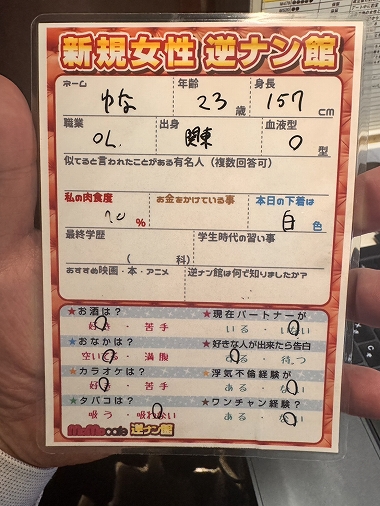 新規女性 逆ナン館
ネーム 年齢 身長
ゆな 23歳 157cm
職業 出身 血液型
OL 関東 O型
似てると言われたことがある有名人（複数回答可）
私の肉食度 お金をかけている事 本日の下着は
70% 白色
最終学歴 学生時代の習い事
（ 科）
おすすめ映画・本・アニメ 逆ナン館は何で知りましたか？
★お酒は？ ★現在パートナーが
好き・苦手 いる・いない
★おなかは？ ★好きな人が出来たら告白
空いてる・満腹 する・待つ
★カラオケは？ ★浮気不倫経験が
好き・苦手 ある・ない
★タバコは？ ★ワンチャン経験？
吸う・吸わない ある・ない
MoMo cafe 逆ナン館